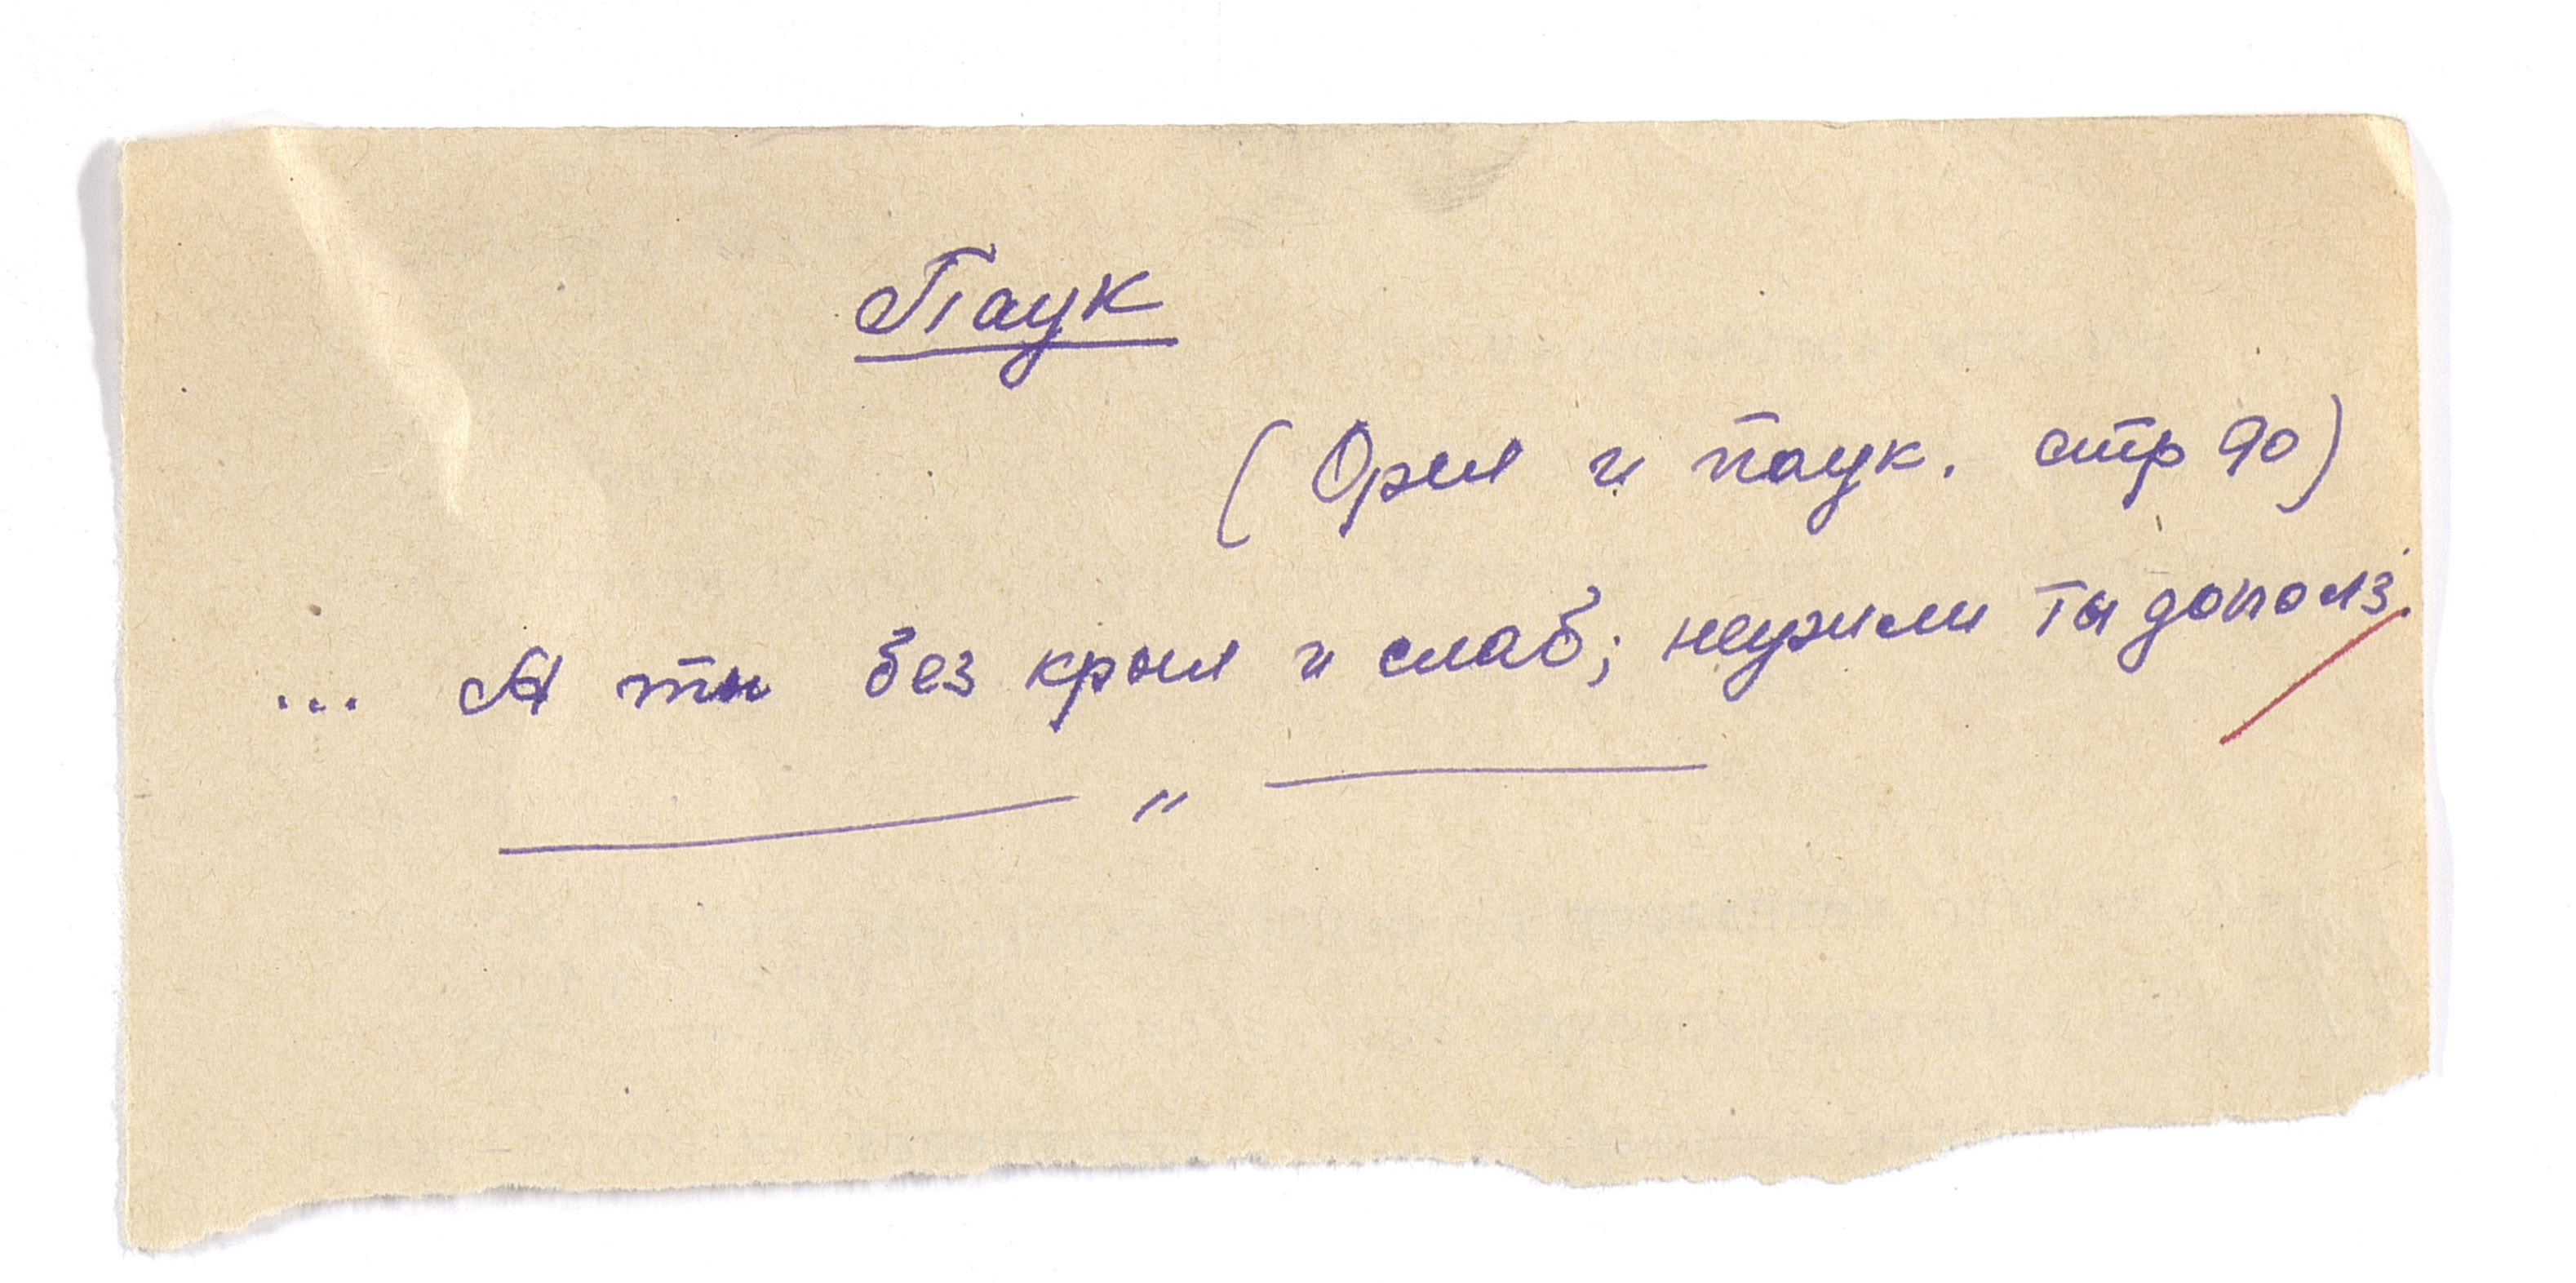 Паук
(Орел и паук. стр 90)
... А ты без крыл и слаб; неужели ты дополз.
"